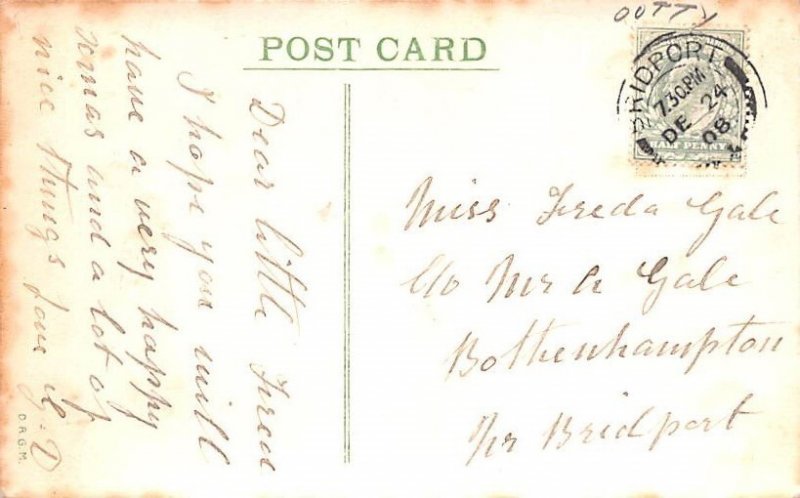 OUTTY
POST CARD
BRIDPORT
7.30.PM
DE 24
08
HALF PENNY
Dear little Freda
I hope you will
have a very happy
xmas and a lot of
nice things
G. D
Miss Freda Gale
C/o Mr A Gale
Bothenhampton
Nr Bridport
D.R.G.M.